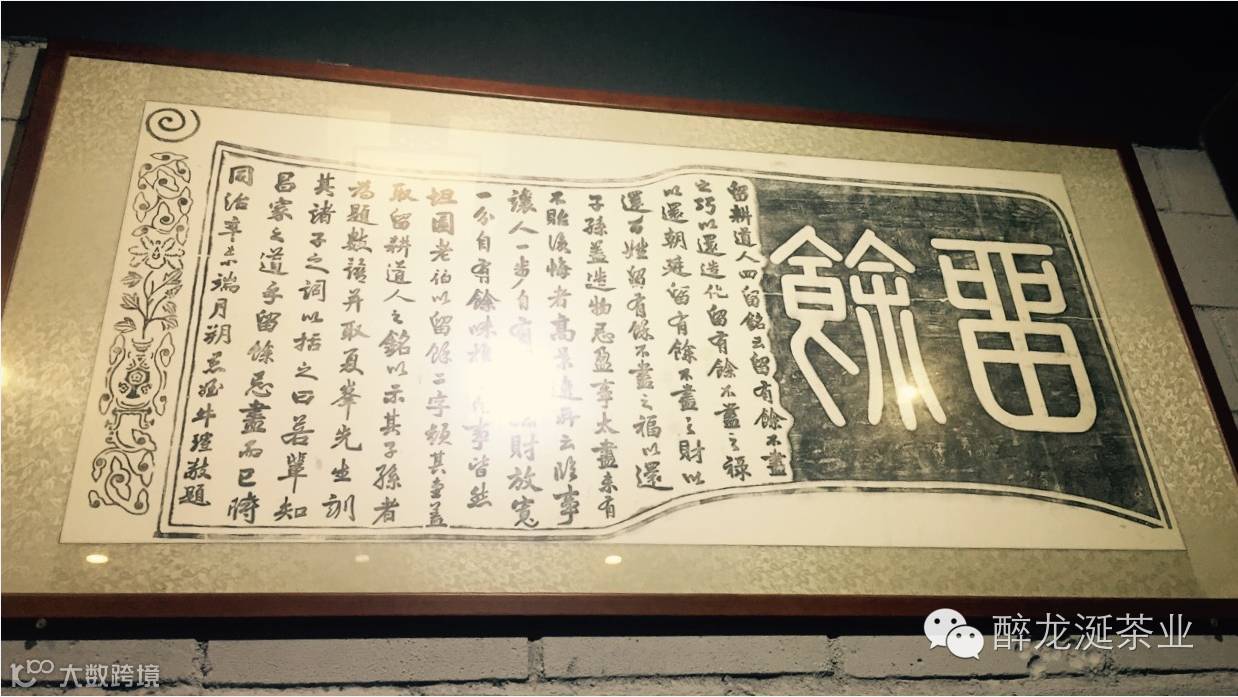 留餘
留耕道人四留銘云留有餘不盡
之巧以還造化留有餘不盡之祿
以還朝廷留有餘不盡之財以
還百姓留有餘不盡之福以還
子孫蓋造物忌盈事太盡未有
不貽後悔者高景逸所云臨事
讓人一步自有財放寬
一分自有餘味推事皆然
坦園老伯以留餘二字顏其堂蓋
取留耕道人之銘以示其子孫者
為題數語并取夏峯先生訓
其諸子之詞以括之曰若輩知
昌家之道乎留餘忌盡而已時
同治辛未端月朔愚姪牛瑄敬題
醉龙涎茶业
大数跨境